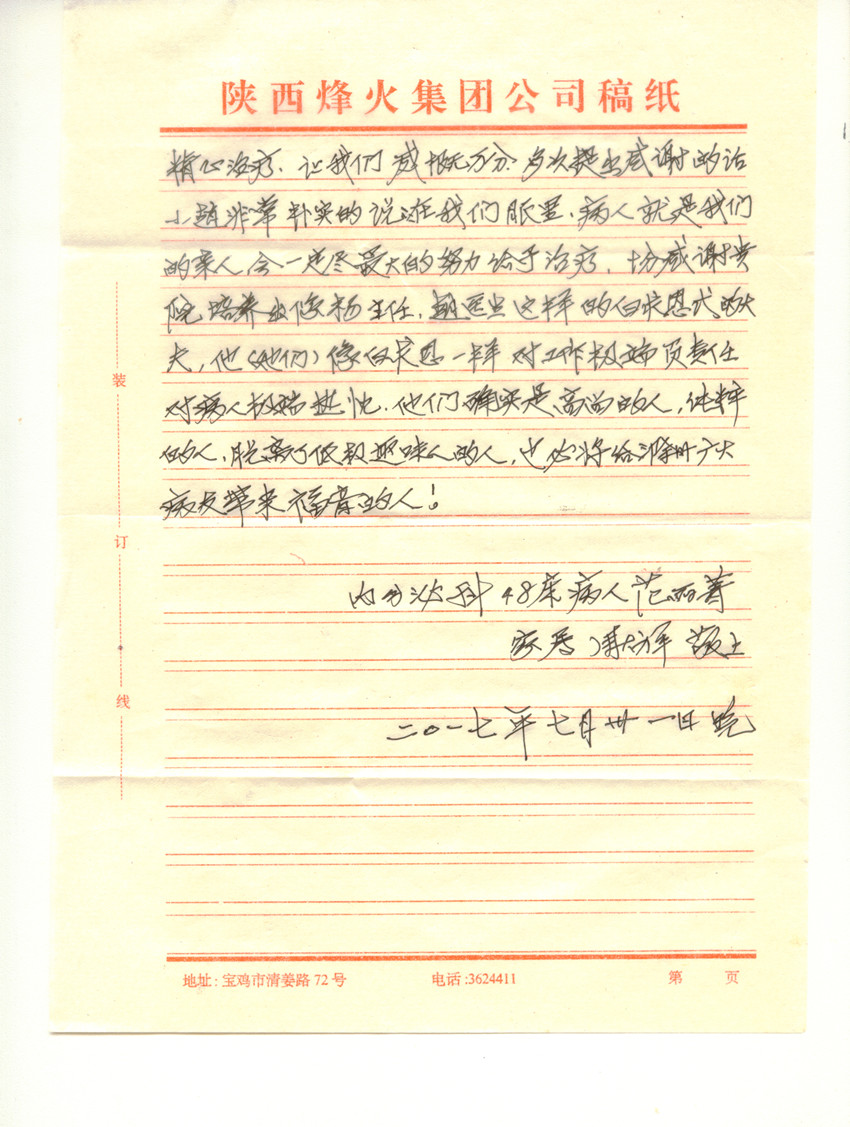 陕西烽火集团公司稿纸
精心治疗、让我们感慨万分、多次提出感谢的话
小赵非常朴实的说:在我们眼里、病人就是我们
的亲人会一定尽最大的努力给予治疗、十分感谢贵
院培养出像杨主任,赵医生这样的白求恩式的大
夫,他(她们)像白求恩一样对工作极端负责任
对病人极端热忱.他们确实是高尚的人,纯粹
的人,脱离了低级趣味的人,也必将给广大
病友带来福音的人!
内分泌科48床病人范
家属
二〇一七年七月卅一日晚
装
订
线
地址:宝鸡市清姜路72号 电话:3624411 第 页